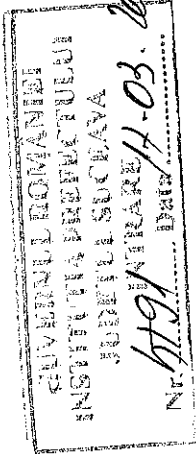 GUVERNUL ROMÂNIEI
INSTITUȚIA PREFECTULUI
JUDEȚUL SUCEAVA
INTRARE
Nr. Data 14-03.